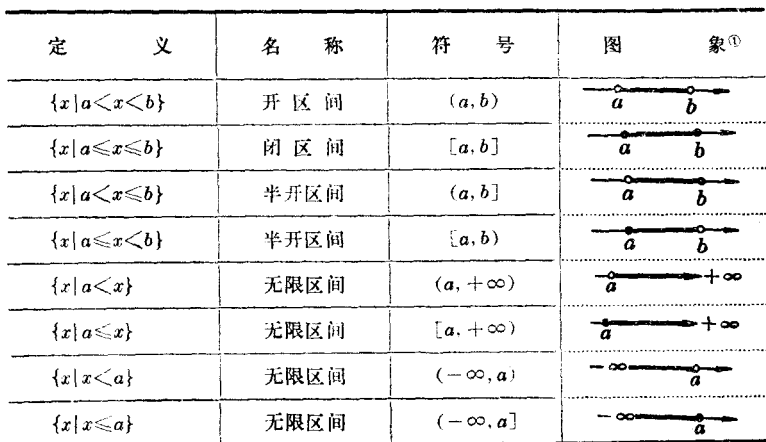 定 义 名 称 符 号 图 象①
{x|a<x<b} 开区间 (a,b) a b
{x|a≤x≤b} 闭区间 [a,b] a b
{x|a<x≤b} 半开区间 (a,b] a b
{x|a≤x<b} 半开区间 [a,b) a b
{x|a<x} 无限区间 (a,+∞) a +∞
{x|a≤x} 无限区间 [a,+∞) a +∞
{x|x<a} 无限区间 (-∞,a) -∞ a
{x|x≤a} 无限区间 (-∞,a] -∞ a